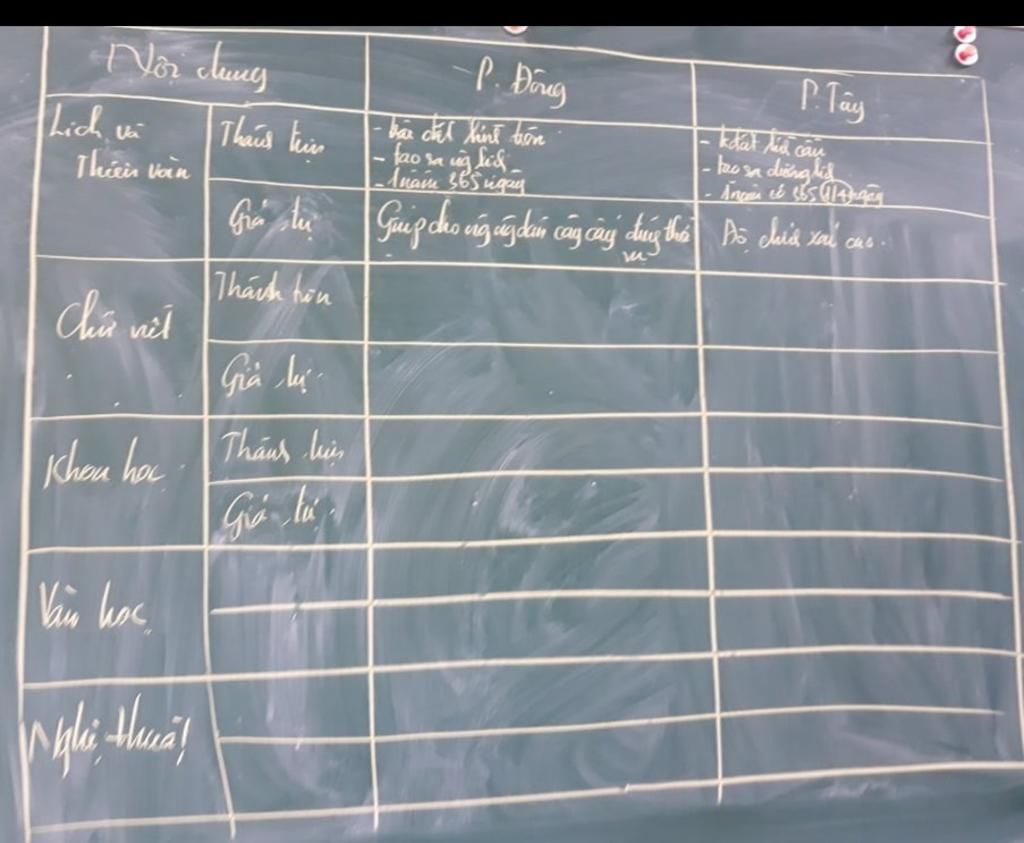 Nội dung
P. Đông
P. Tây
Lịch và
Thiên văn
Thành tựu
- trái đất hình tròn
- tạo ra ng lịch
- 1 năm 365 ngày
- tđất hình cầu
- tạo ra dương lịch
- 1 năm có 365 (1/4) ngày
Giá trị
Giúp cho ng ng dân cày cấy đúng thời
vụ
Độ chính xác cao.
Chữ viết
Thành tựu
Giá trị
Khoa học
Thành tựu
Giá trị
Văn học
Nghệ thuật